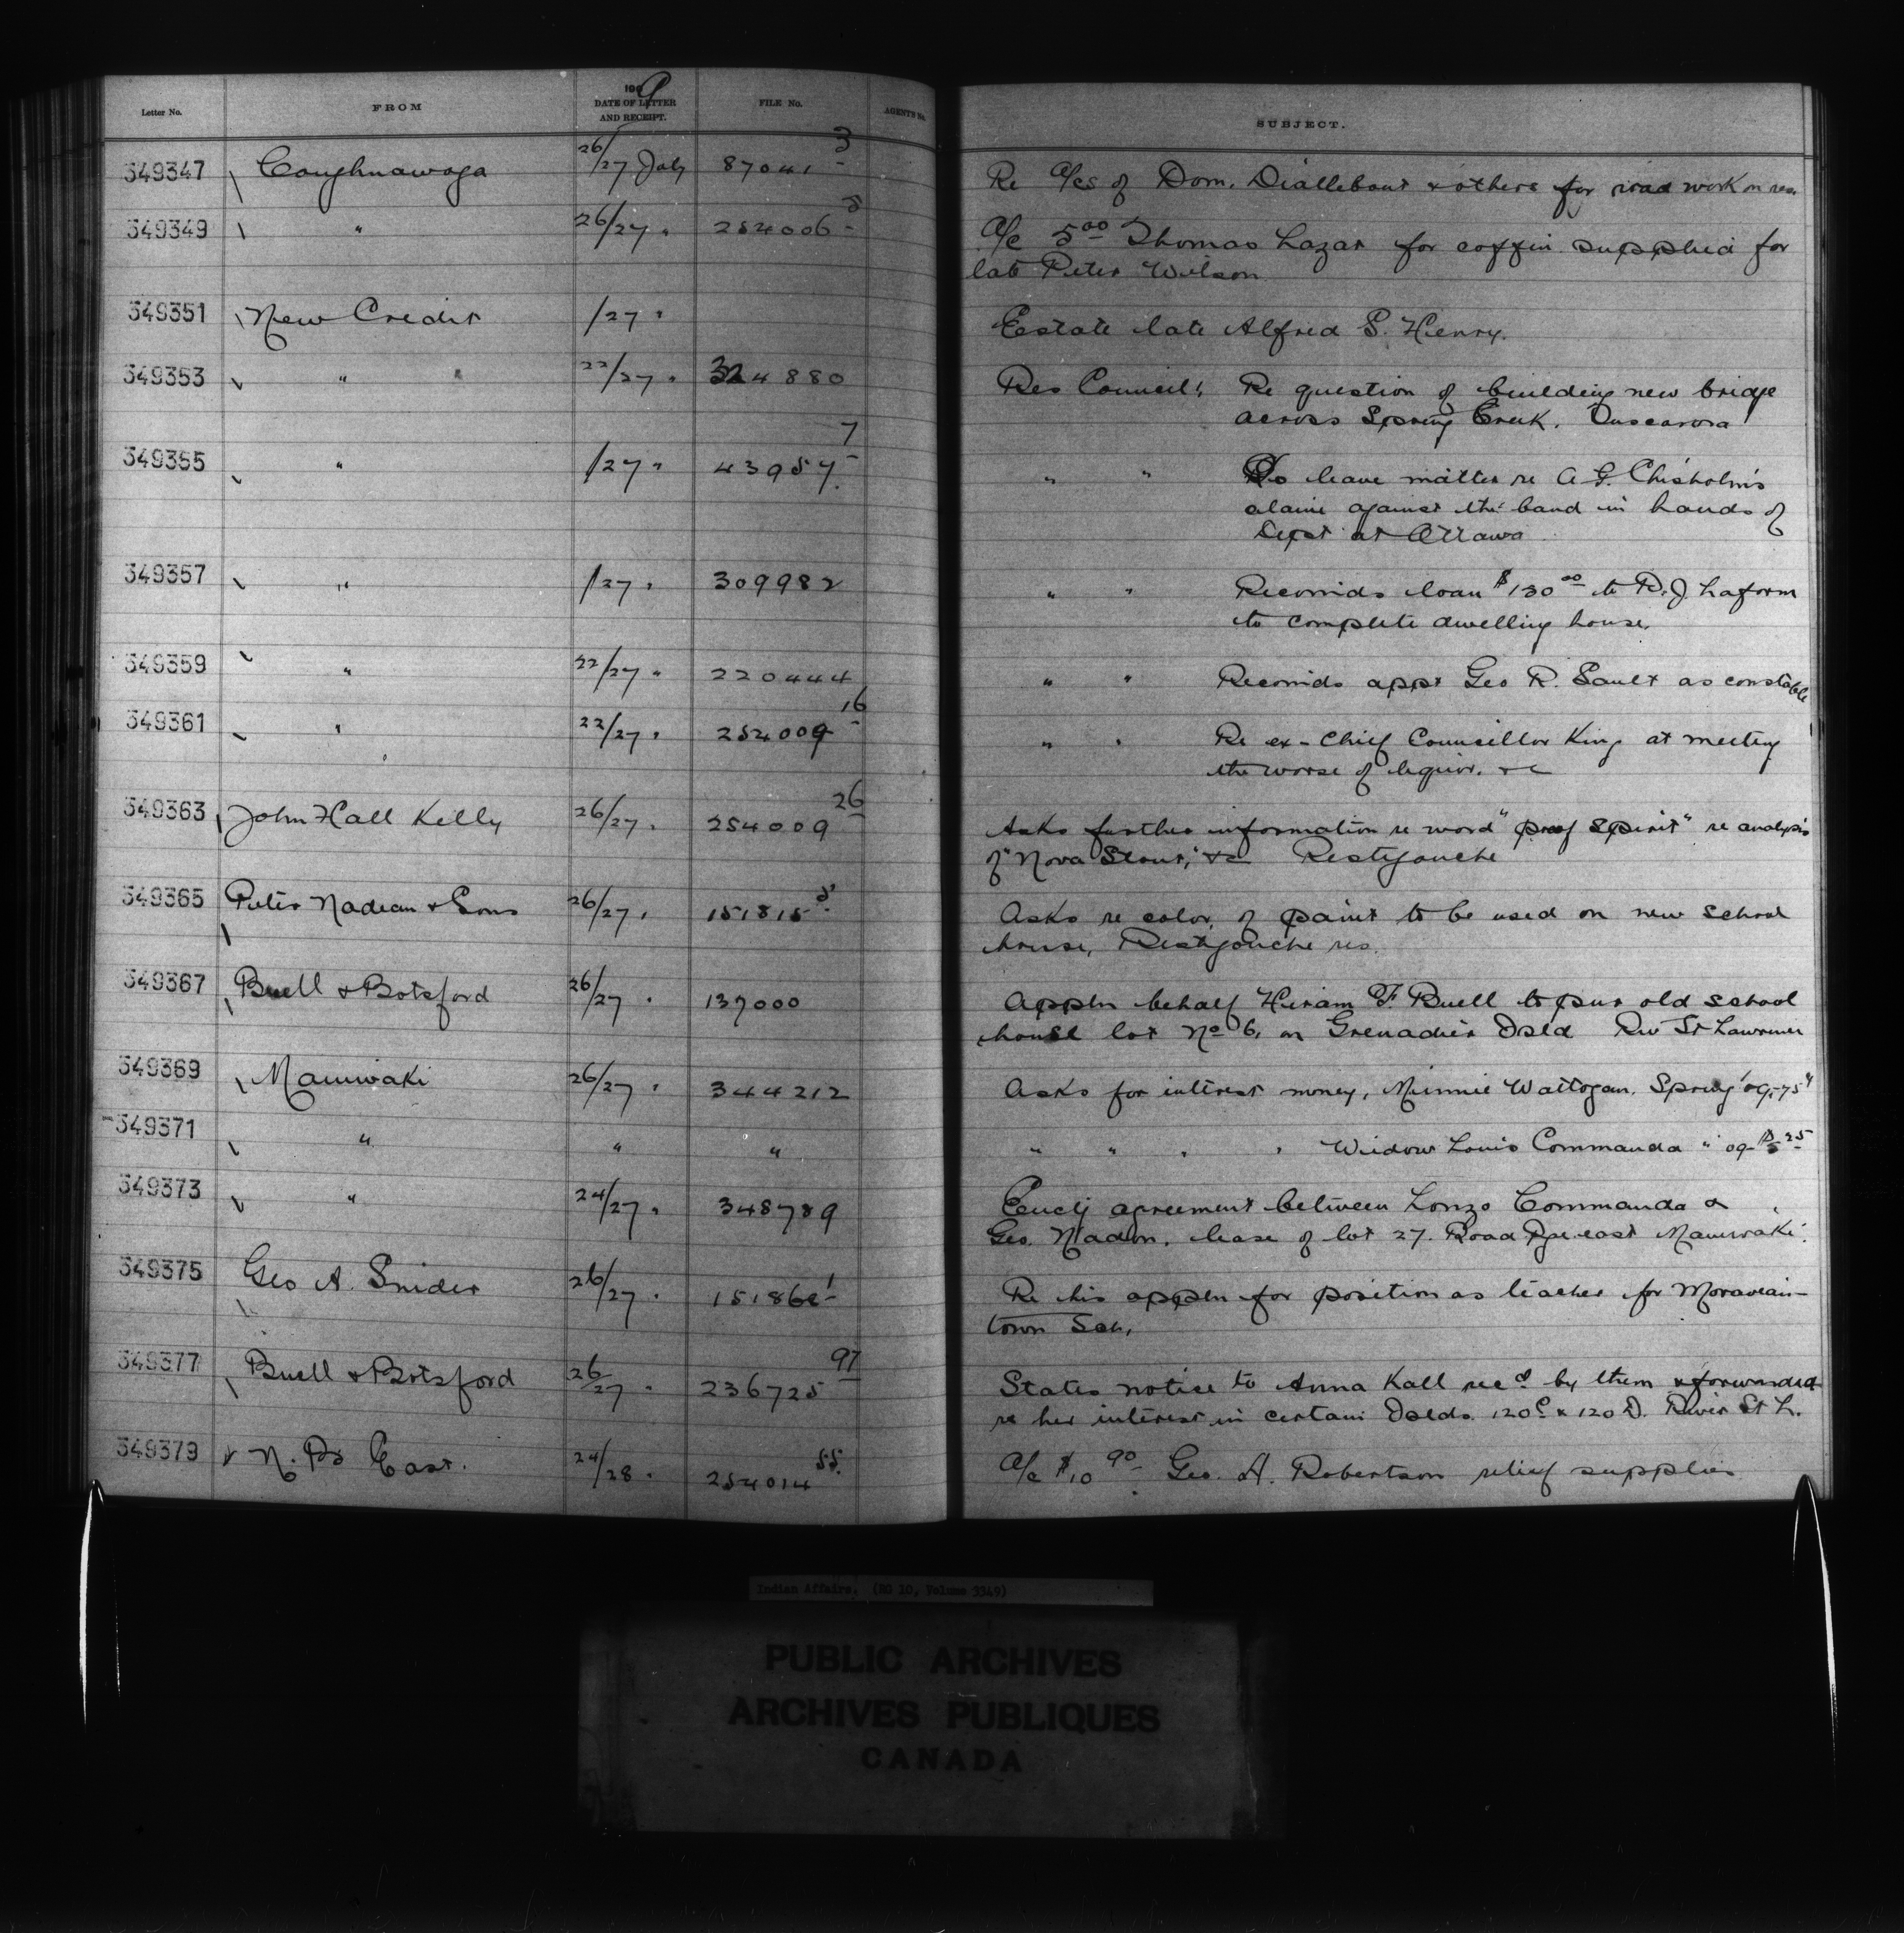 Letter No. FROM 1909 DATE OF LETTER AND RECEIPT. FILE No. AGENTS No. SUBJECT.
349347 Caughnawaga 26/27 July 87041-3 Re a/cs of Dom. Diallebout & others for road work on res.
349349 " 26/27 " 254006-5 A/c 5.00 Thomas Lazar for coffin supplied for
late Peter Wilson
349351 New Credit /27 " Estate late Alfred S. Henry.
349353 " 22/27 " 324880 Res Council: Re question of building new bridge
across Spring Creek. Tuscarora
349355 " /27 " 43957-7 " " To leave matter re A. G. Chisholm's
claim against the band in hands of
Dept at Ottawa
349357 " /27 " 309982 " " Recomds loan $130.00 to R. J. Laform
to complete dwelling house.
349359 " 22/27 " 220444 " " Recomds appt Geo R. Sault as constable
349361 " 22/27 " 254009-16 " " Re ex-Chief Councillor King at meeting
the worse of liquor. &c
349363 John Hall Kelly 26/27 " 254009-26 Asks further information re word "proof spirit" re analysis
of "Nova Stout," &c Restigouche
349365 Peter Nadeau & Sons 26/27 " 151815-5 Asks re color of paint to be used on new school
house, Restigouche res.
349367 Buell & Botsford 26/27 " 137000 Appln behalf Hiram F. Buell to pur old school
house lot No 6, on Grenadier Isld Riv St Lawrence
349369 Maniwaki 26/27 " 344212 Asks for interest money, Minnie Wattogan. Spring '09. 75"
349371 " " " " " " " Widow Louis Commanda " 09 $5.25
349373 " 24/27 " 348789 Enclg agreement between Lonzo Commanda &
Geo. Nadon. lease of lot 27. Road Rge east Maniwaki.
349375 Geo A. Snider 26/27 " 151866-1 Re his appln for position as teacher for Moravian-
town Sch.
349377 Buell & Botsford 26/27 " 236725-97 States notice to Anna Kall recd by them & forwarded
re her interest in certain Islds. 120C & 120D. River St L.
349379 N. Bs East. 24/28 " 254014-55. A/c $10.90 Geo. A. Robertson relief supplies
Indian Affairs. (RG 10, Volume 3349)
PUBLIC ARCHIVES
ARCHIVES PUBLIQUES
CANADA